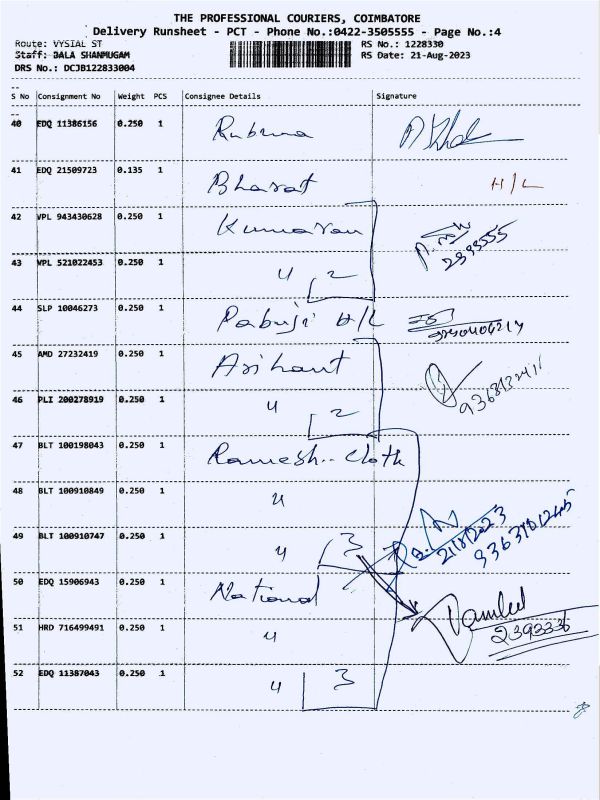 THE PROFESSIONAL COURIERS, COIMBATORE
Delivery Runsheet - PCT - Phone No.:0422-3505555 - Page No.:4
Route: VYSIAL ST RS No.: 1228330
Staff: BALA SHANMUGAM RS Date: 21-Aug-2023
DRS No.: DCJB122833004
S No Consignment No Weight PCS Consignee Details Signature
40 EDQ 11386156 0.250 1 Rubuna
41 EDQ 21509723 0.135 1 Bharat H/L
42 VPL 943430628 0.250 1 Kumaran
43 VPL 521022453 0.250 1 4 2 2393555
44 SLP 10046273 0.250 1 Pabuji H/L
45 AMD 27232419 0.250 1 Arihant
46 PLI 200278919 0.250 1 4 2
47 BLT 100198043 0.250 1 Ramesh.. Cloth
48 BLT 100910849 0.250 1 4
49 BLT 100910747 0.250 1 4 3 21/8/2023
50 EDQ 15906943 0.250 1 National
51 HRD 716499491 0.250 1 4 2393336
52 EDQ 11387043 0.250 1 4 3